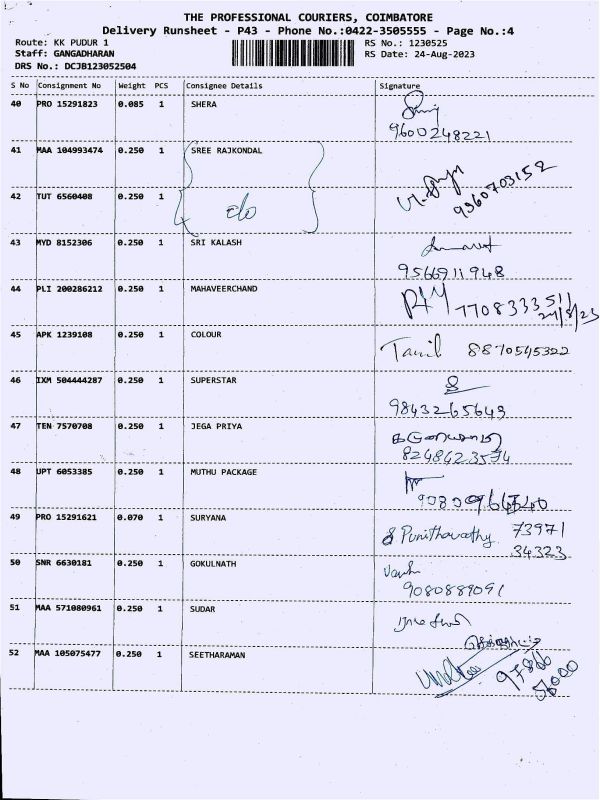 THE PROFESSIONAL COURIERS, COIMBATORE
Delivery Runsheet - P43 - Phone No.:0422-3505555 - Page No.:4
Route: KK PUDUR 1 RS No.: 1230525
Staff: GANGADHARAN RS Date: 24-Aug-2023
DRS No.: DCJB123052504
S No Consignment No Weight PCS Consignee Details Signature
40 PRO 15291823 0.085 1 SHERA
9600248221
41 MAA 104993474 0.250 1 SREE RAJKONDAL
9360703152
42 TUT 6560408 0.250 1
43 MYD 8152306 0.250 1 SRI KALASH
9566911948
44 PLI 200286212 0.250 1 MAHAVEERCHAND
7708333511
24/8/23
45 APK 1239108 0.250 1 COLOUR Tamil 8870545322
46 IXM 504444287 0.250 1 SUPERSTAR
9843265643
47 TEN 7570708 0.250 1 JEGA PRIYA
8248423574
48 UPT 6053385 0.250 1 MUTHU PACKAGE
49 PRO 15291621 0.070 1 SURYANA
Punithavathy 73971
34323
50 SNR 6630181 0.250 1 GOKULNATH
9080889091
51 MAA 571080961 0.250 1 SUDAR
52 MAA 105075477 0.250 1 SEETHARAMAN
97866
56000